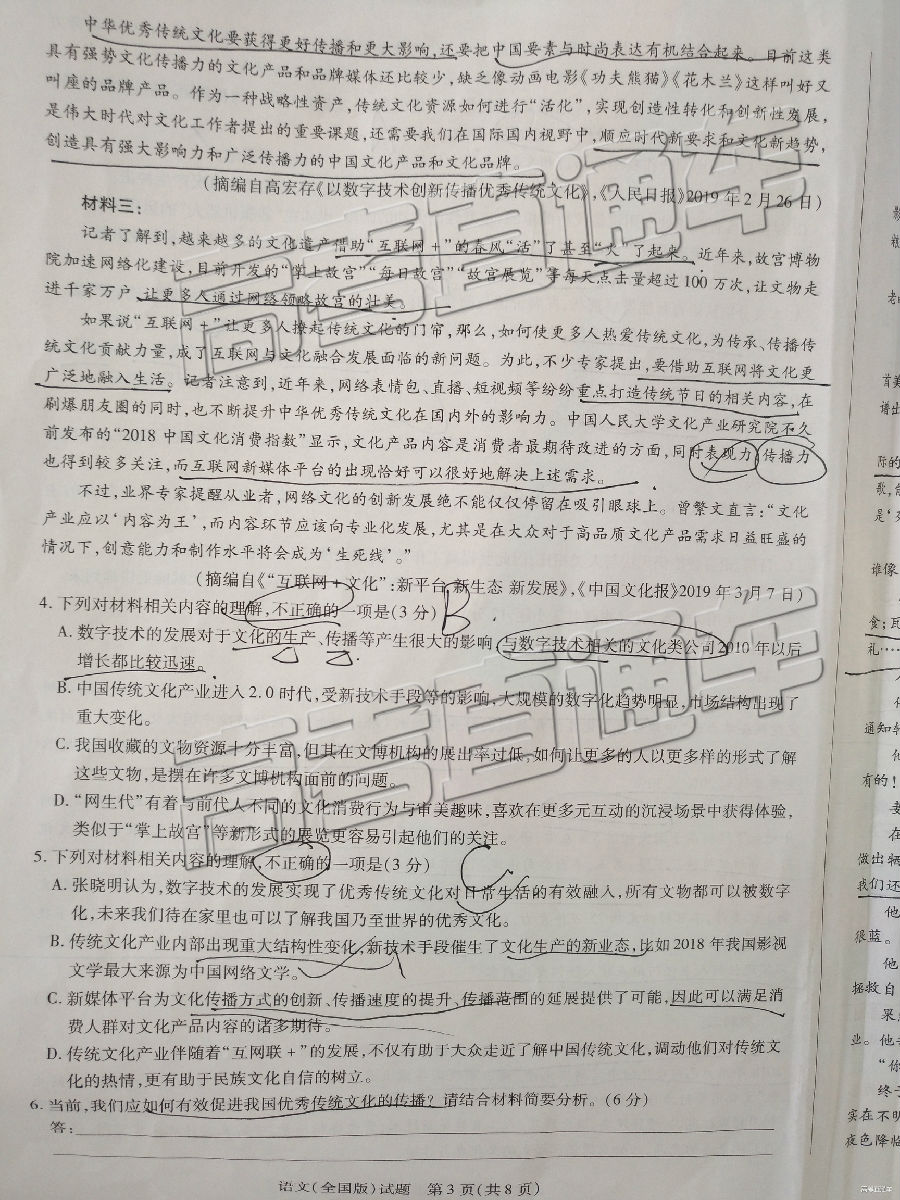 中华优秀传统文化要获得更好传播和更大影响,还要把中国要素与时尚表达有机结合起来。目前这类
具有强势文化传播力的文化产品和品牌媒体还比较少,缺乏像动画电影《功夫熊猫》《花木兰》这样叫好又
叫座的品牌产品。作为一种战略性资产,传统文化资源如何进行“活化”,实现创造性转化和创新性发展,
是伟大时代对文化工作者提出的重要课题,还需要我们在国际国内视野中,顺应时代新要求和文化新趋势,
创造具有强大影响力和广泛传播力的中国文化产品和文化品牌。
(摘编自高宏存《以数字技术创新传播优秀传统文化》,《人民日报》2019年2月26日)
材料三:
记者了解到,越来越多的文化遗产借助“互联网+”的春风“活”了甚至“火”了起来。近年来,故宫博物
院加速网络化建设,目前开发的“掌上故宫”“每日故宫”“故宫展览”等每天点击量超过100万次,让文物走
进千家万户,让更多人通过网络领略故宫的壮美。
如果说“互联网+”让更多人撩起传统文化的门帘,那么,如何使更多人热爱传统文化,为传承、传播传
统文化贡献力量,成了互联网与文化融合发展面临的新问题。为此,不少专家提出,要借助互联网将文化更
广泛地融入生活。记者注意到,近年来,网络表情包、直播、短视频等纷纷重点打造传统节日的相关内容,在
刷爆朋友圈的同时,也不断提升中华优秀传统文化在国内外的影响力。中国人民大学文化产业研究院不久
前发布的“2018中国文化消费指数”显示,文化产品内容是消费者最期待改进的方面,同时表现力、传播力
也得到较多关注,而互联网新媒体平台的出现恰好可以很好地解决上述需求。
不过,业界专家提醒从业者,网络文化的创新发展绝不能仅仅停留在吸引眼球上。曾繁文直言:“文化
产业应以‘内容为王’,而内容环节应该向专业化发展,尤其是在大众对于高品质文化产品需求日益旺盛的
情况下,创意能力和制作水平将会成为‘生死线’。”
(摘编自《“互联网+文化”:新平台 新生态 新发展》,《中国文化报》2019年3月7日)
4. 下列对材料相关内容的理解,不正确的一项是(3分) B
A. 数字技术的发展对于文化的生产、传播等产生很大的影响,与数字技术相关的文化类公司2010年以后
增长都比较迅速。
B. 中国传统文化产业进入2.0时代,受新技术手段等的影响,大规模的数字化趋势明显,市场结构出现了
重大变化。
C. 我国收藏的文物资源十分丰富,但其在文博机构的展出率过低,如何让更多的人以更多样的形式了解
这些文物,是摆在许多文博机构面前的问题。
D. “网生代”有着与前代人不同的文化消费行为与审美趣味,喜欢在更多元互动的沉浸场景中获得体验,
类似于“掌上故宫”等新形式的展览更容易引起他们的关注。
5. 下列对材料相关内容的理解,不正确的一项是(3分) C
A. 张晓明认为,数字技术的发展实现了优秀传统文化对日常生活的有效融入,所有文物都可以被数字
化,未来我们待在家里也可以了解我国乃至世界的优秀文化。
B. 传统文化产业内部出现重大结构性变化,新技术手段催生了文化生产的新业态,比如2018年我国影视
文学最大来源为中国网络文学。
C. 新媒体平台为文化传播方式的创新、传播速度的提升、传播范围的延展提供了可能,因此可以满足消
费人群对文化产品内容的诸多期待。
D. 传统文化产业伴随着“互网联+”的发展,不仅有助于大众走近了解中国传统文化,调动他们对传统文
化的热情,更有助于民族文化自信的树立。
6. 当前,我们应如何有效促进我国优秀传统文化的传播?请结合材料简要分析。(6分)
答:
语文(全国版)试题 第3页(共8页)
高考直通车
高考直通车
老
首美
谱出
际的
歌,
是‘
谁像
食;瓦
礼……
通知
他
有的!
做出
我们还
他
很蓝。
他
拯救自
果
业。他
“你
终于
实在不
夜色降临